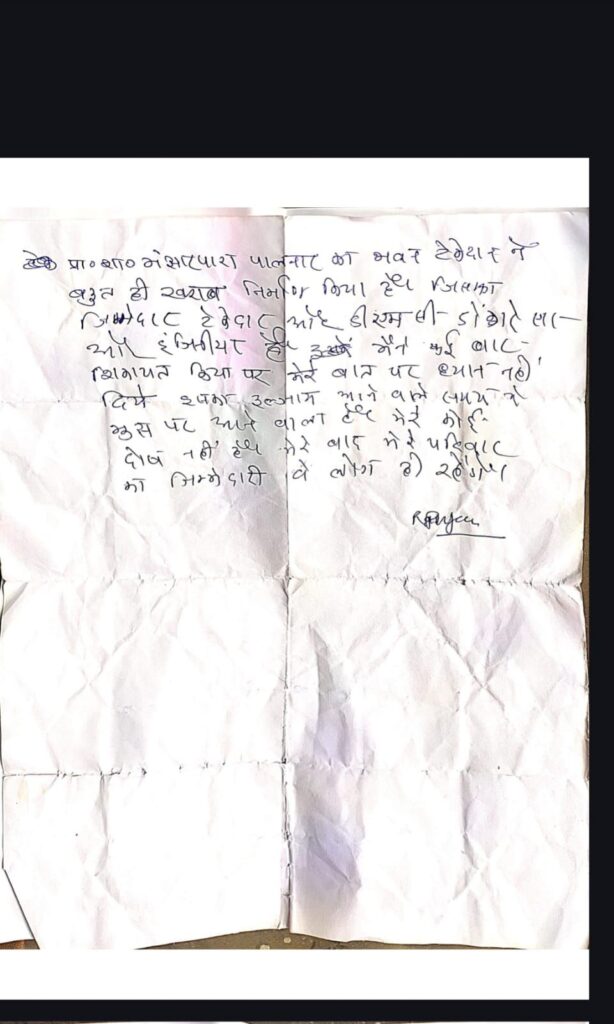 प्रा०शा० मंझारपारा पालनार का भवन ठेकेदार ने
बहुत ही खराब निर्माण किया है। जिसका
जिम्मेदार ठेकेदार और डीएमसी डोंगरे सर
और इंजिनियर है। मैने कई बार
शिकायत किया पर मेरे बात पर ध्यान नहीं
दिये इसका इल्जाम आने वाले समय में
मुझ पर आने वाला है। मेरे कोई
दोष नहीं है। मेरे बाद मेरे परिवार
का जिम्मेदारी वे लोग ही रहेंगे।